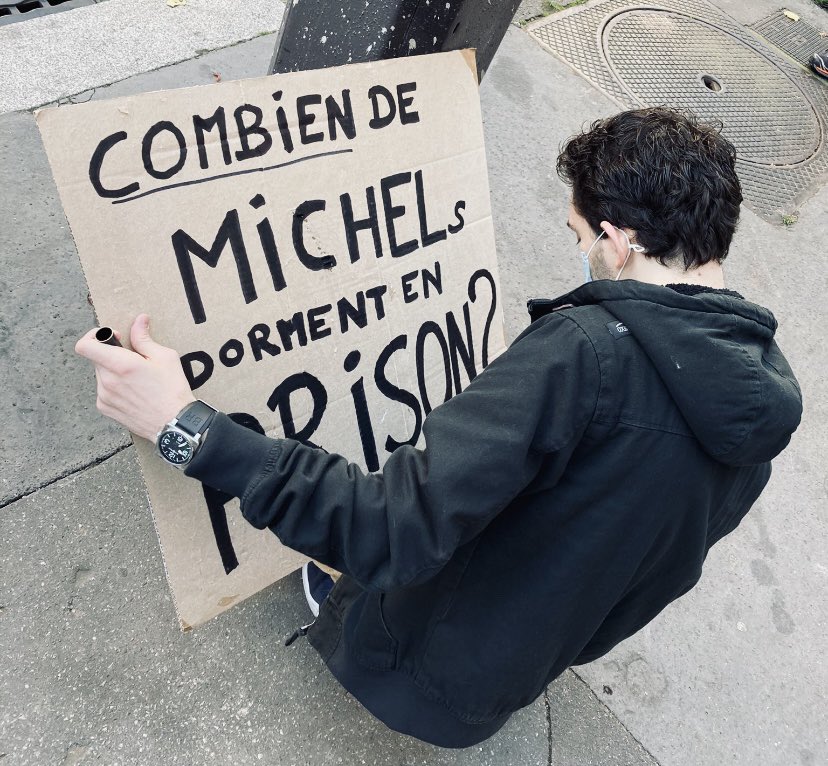 COMBIEN DE
MICHELs
DORMENT EN
PRISON?